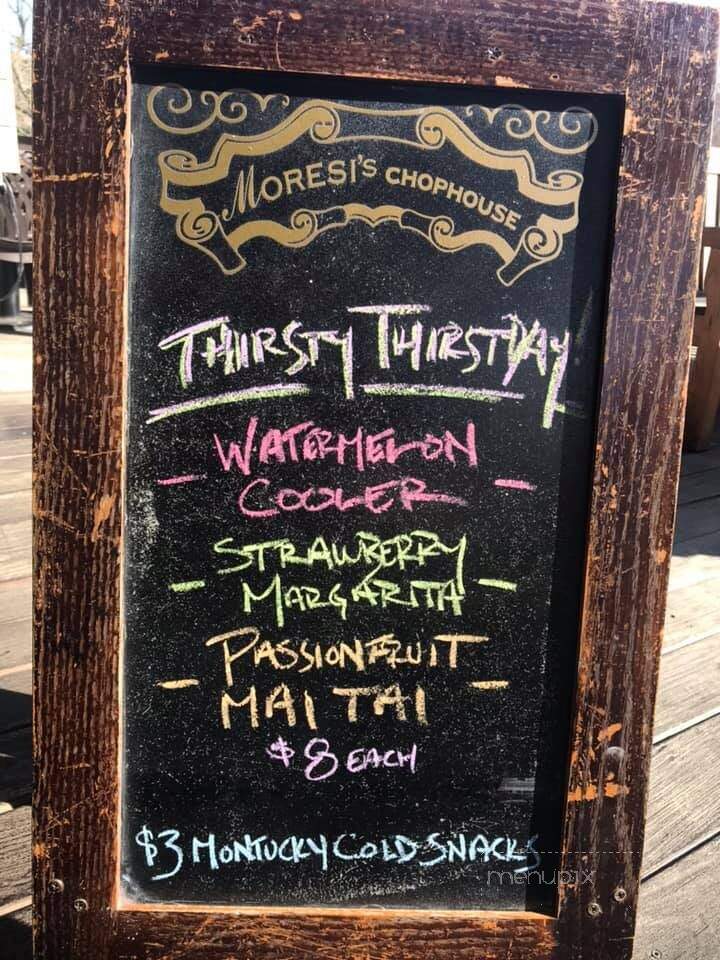 MORESI'S CHOPHOUSE
THIRSTY THIRSTDAY
WATERMELON
- COOLER -
STRAWBERRY
- MARGARITA -
PASSIONFRUIT
- MAI TAI -
$8 EACH
$3 MONTUCKY COLD SNACKS
menupix